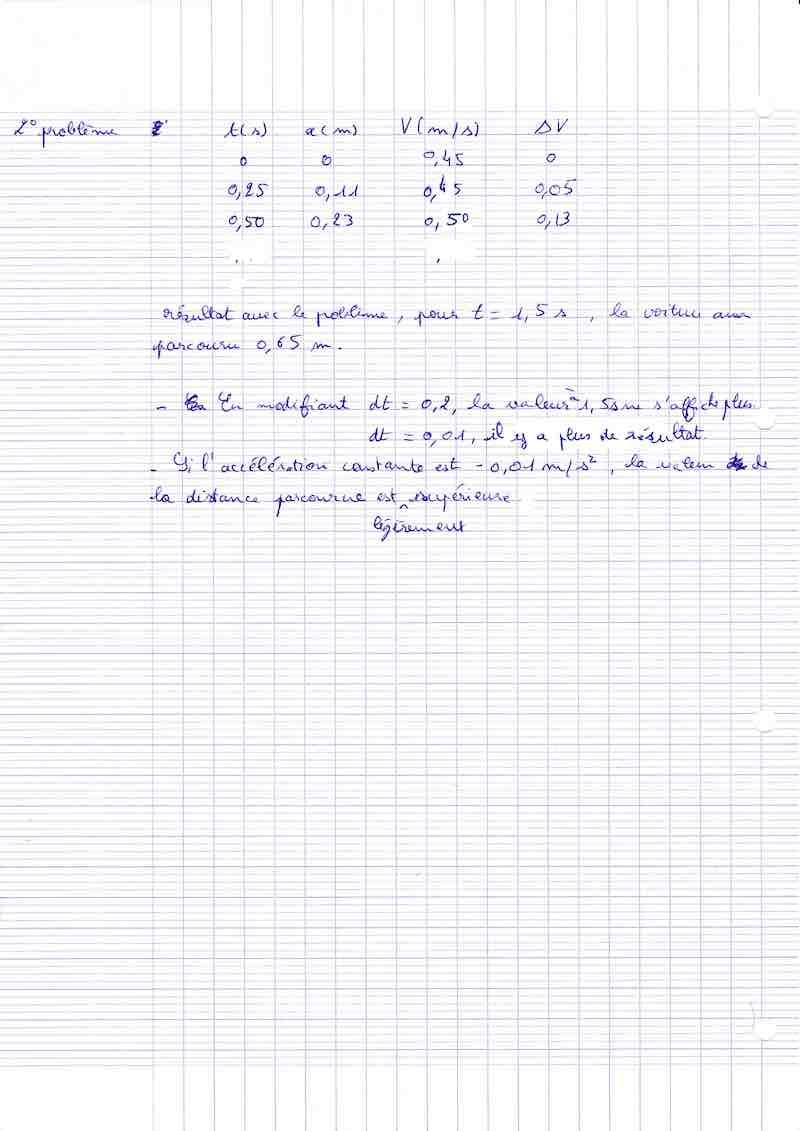 2° problème t(s) x(m) V(m/s) ΔV
0 0 0,45 0
0,25 0,11 0,45 0,05
0,50 0,23 0,50 0,13
résultat avec le poblème, pour t = 1,5 s, la voiture aura
parcouru 0,65 m.
- En modifiant dt = 0,2, la valeur 1,5s ne s'affiche plus
dt = 0,01, il y a plus de résultat.
- Si l'accélération constante est -0,01 m/s², la valeur de
la distance parcourue est supérieure
légèrement